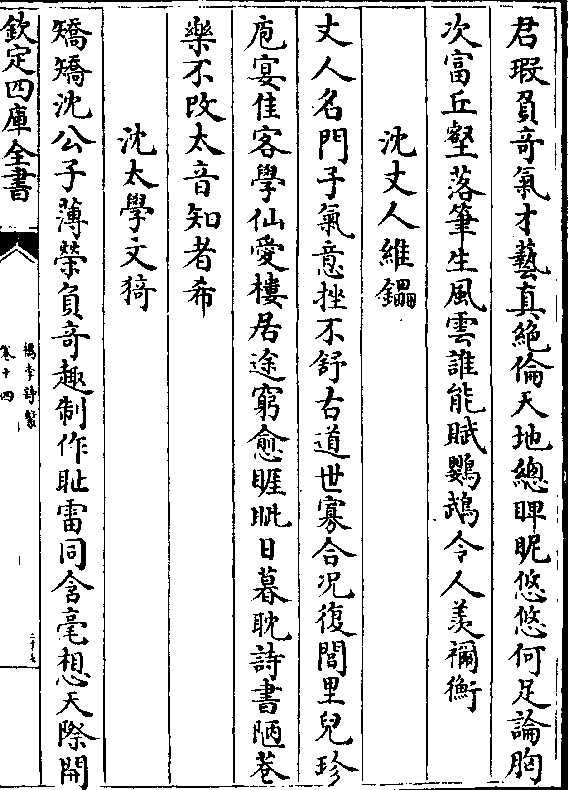 君瑕負奇氣才藝真絶倫天地總睥睨悠悠何足論胸
次富丘壑落筆生風雲誰能賦鸚鵡令人羨禰衡
沈丈人維鑘
丈人名門子氣意挫不舒古道世寡合况復閭里兒珍
庖宴佳客學仙愛樓居途窮愈睚眦日暮耽詩書陋巷
樂不改太音知者希
沈太學文猗
矯矯沈公子薄榮負奇趣制作耻雷同含毫想天際開
欽定四庫全書
檇李詩繫
卷十四
二十七